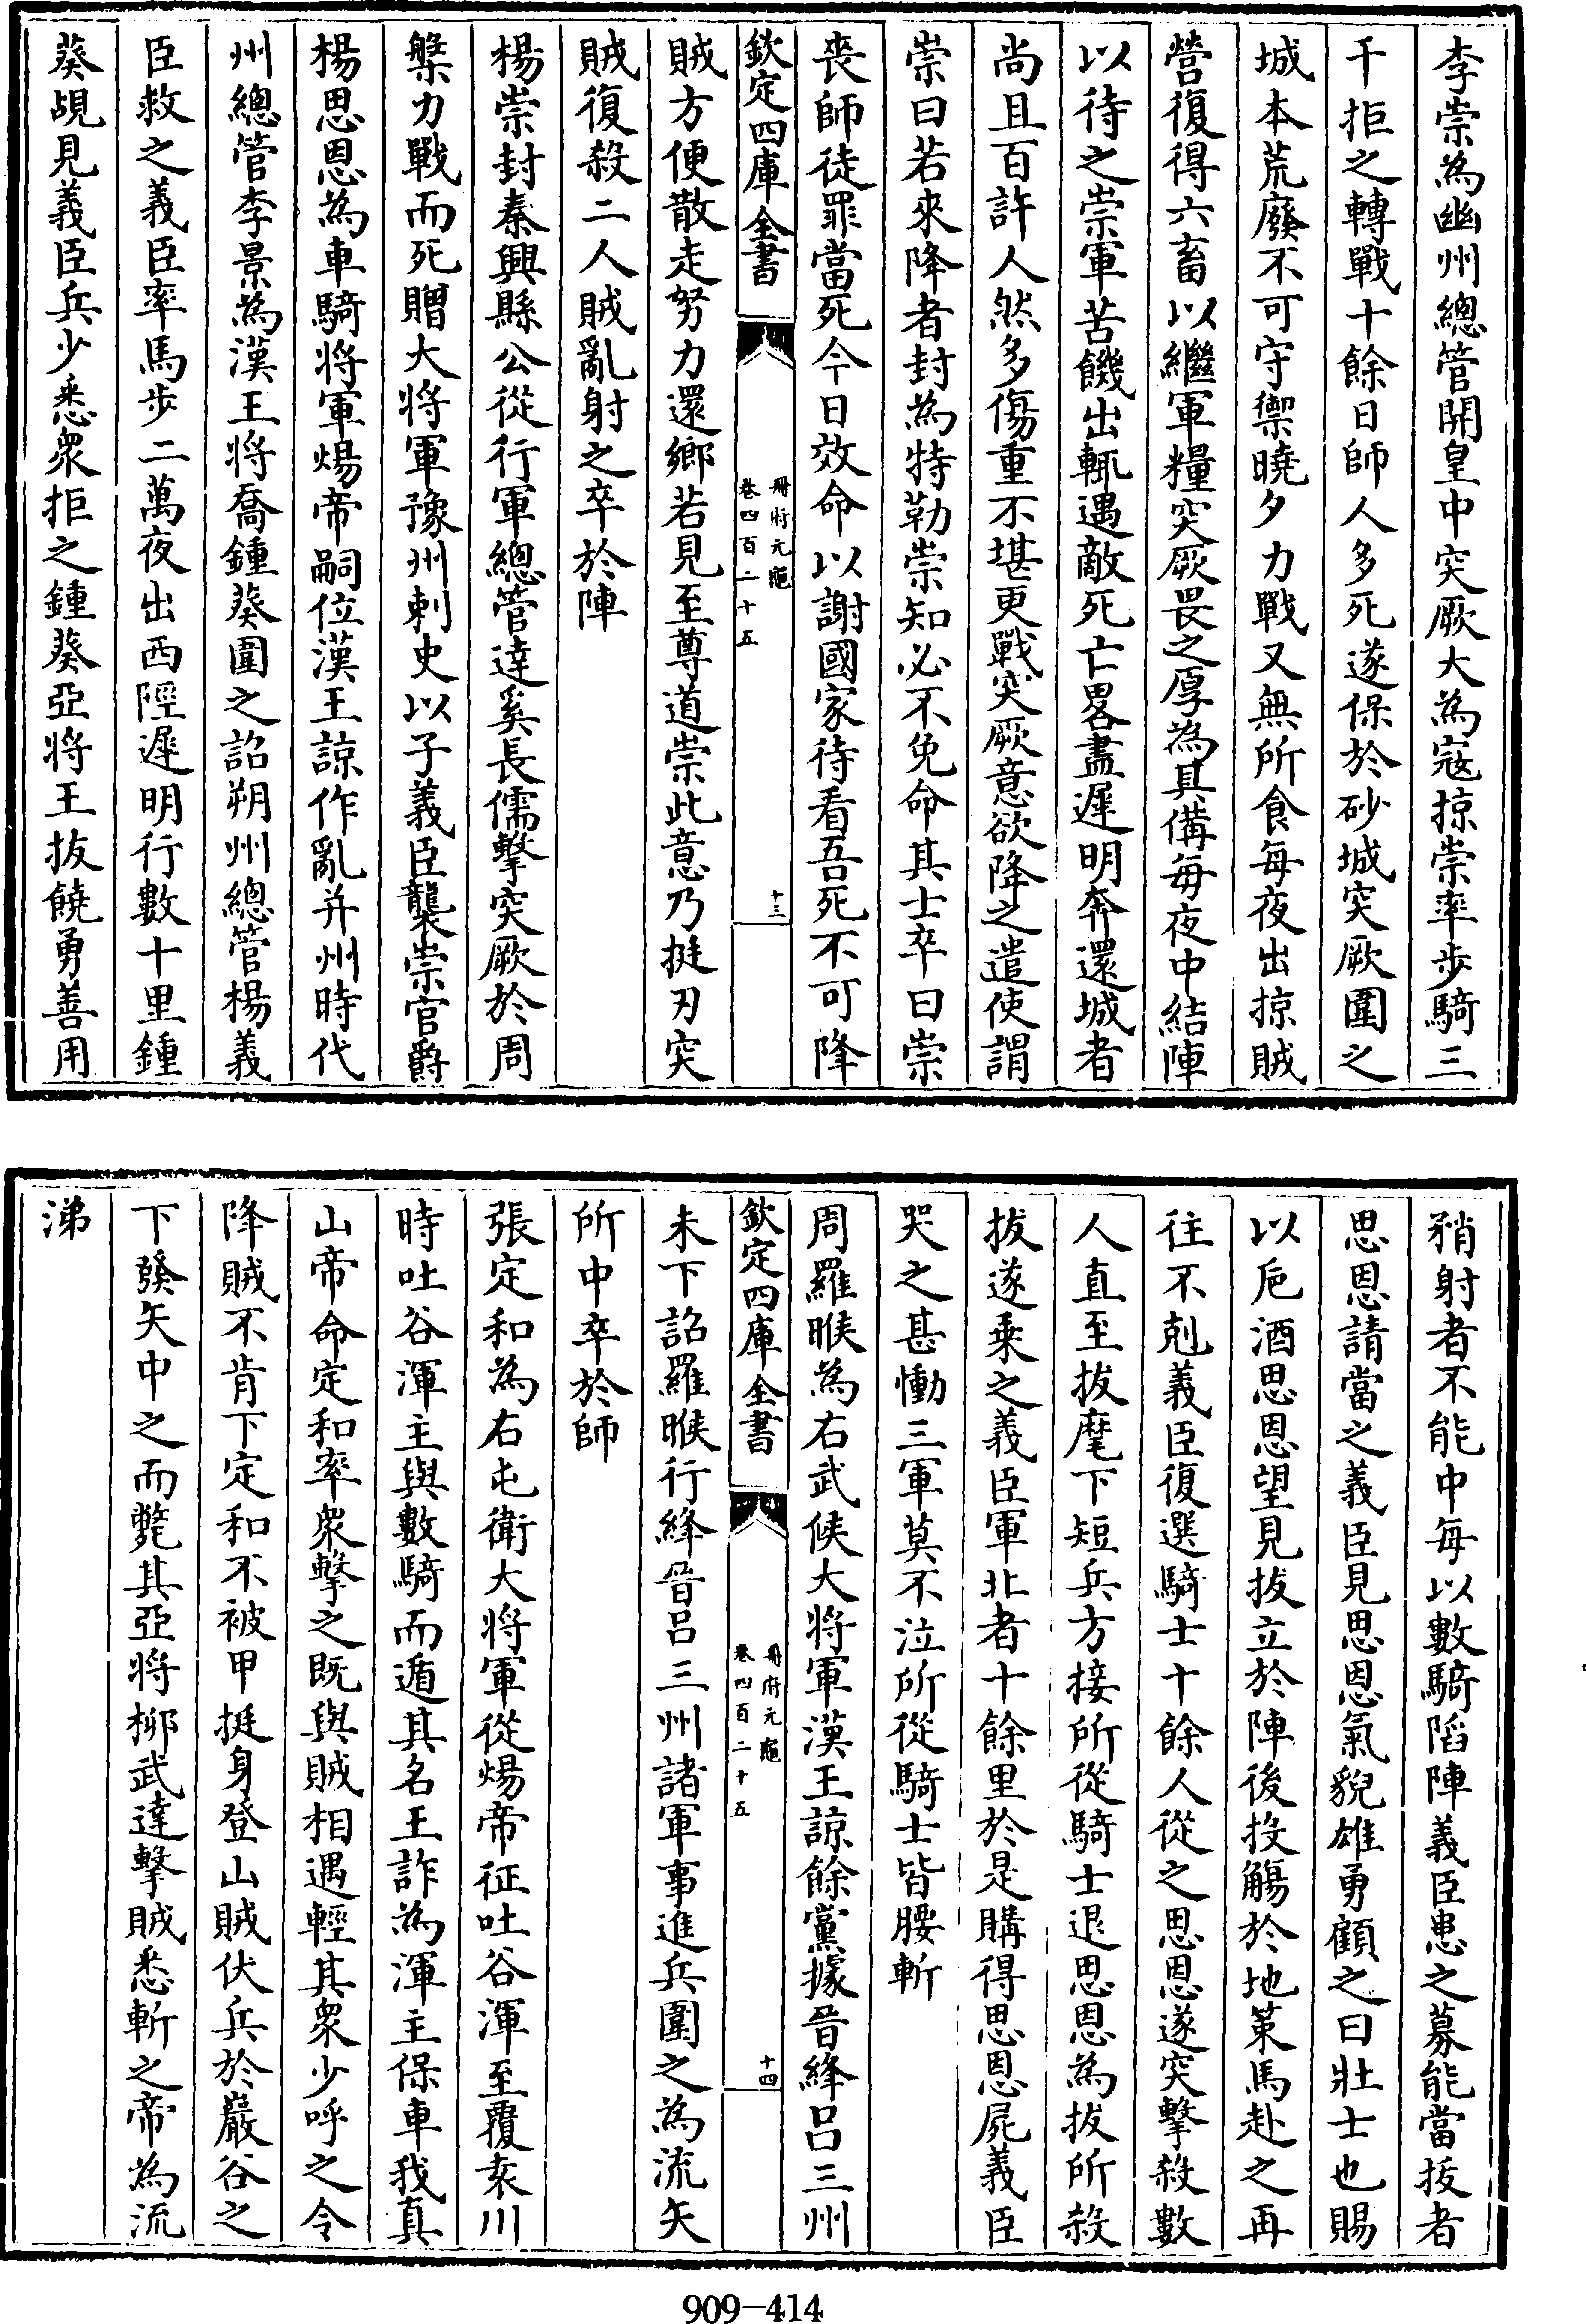 李崇為幽州總管開皇中突厥大為寇掠崇率步騎三
千拒之轉戰十餘日師人多死遂保於砂城突厥圍之
城本荒廢不可守禦曉夕力戰又無所食每夜出掠賊
營復得六畜以繼軍糧突厥畏之厚為其備每夜中結陣
以待之崇軍苦饑出輒遇敵死亡畧盡遲明奔還城者
尚且百許人然多傷重不堪更戰突厥意欲降之遣使謂
崇曰若來降者封為特勒崇知必不免命其士卒曰崇
喪師徒罪當死今日效命以謝國家待看吾死不可降
欽定四庫全書
冊府元龜
卷四百二十五
十三
賊方便散走努力還鄉若見至尊道崇此意乃挺刃突
賊復殺二人賊亂射之卒於陣
楊崇封秦興縣公從行軍總管達奚長儒擊突厥於周
槃力戰而死贈大將軍豫州刺史以子義臣襲崇官爵
楊思恩為車騎將軍煬帝嗣位漢王諒作亂并州時代
州總管李景為漢王將喬鍾葵圍之詔朔州總管楊義
臣救之義臣率馬步二萬夜出西陘遲明行數十里鍾
葵覘見義臣兵少悉衆拒之鍾葵亞將王拔饒勇善用
矟射者不能中每以數騎䧟陣義臣患之募能當拔者
思恩請當之義臣見思恩氣貌雄勇顧之曰壯士也賜
以巵酒思恩望見拔立於陣後投觴於地策馬赴之再
往不剋義臣復選騎士十餘人從之思恩遂突擊殺數
人直至拔麾下短兵方接所從騎士退思恩為拔所殺
拔遂乗之義臣軍北者十餘里於是購得思恩屍義臣
哭之甚慟三軍莫不泣所從騎士皆腰斬
周羅睺為右武候大將軍漢王諒餘黨據晉絳呂三州
欽定四庫全書
冊府元龜
卷四百二十五
十四
未下詔羅睺行絳晉呂三州諸軍事進兵圍之為流矢
所中卒於師
張定和為右屯衛大將軍從煬帝征吐谷渾至覆袁川
時吐谷渾主與數騎而遁其名王詐為渾主保車我真
山帝命定和率衆擊之既與賊相遇輕其衆少呼之令
降賊不肯下定和不被甲挺身登山賊伏兵於巖谷之
下發矢中之而斃其亞將栁武達擊賊悉斬之帝為流
涕
909-414